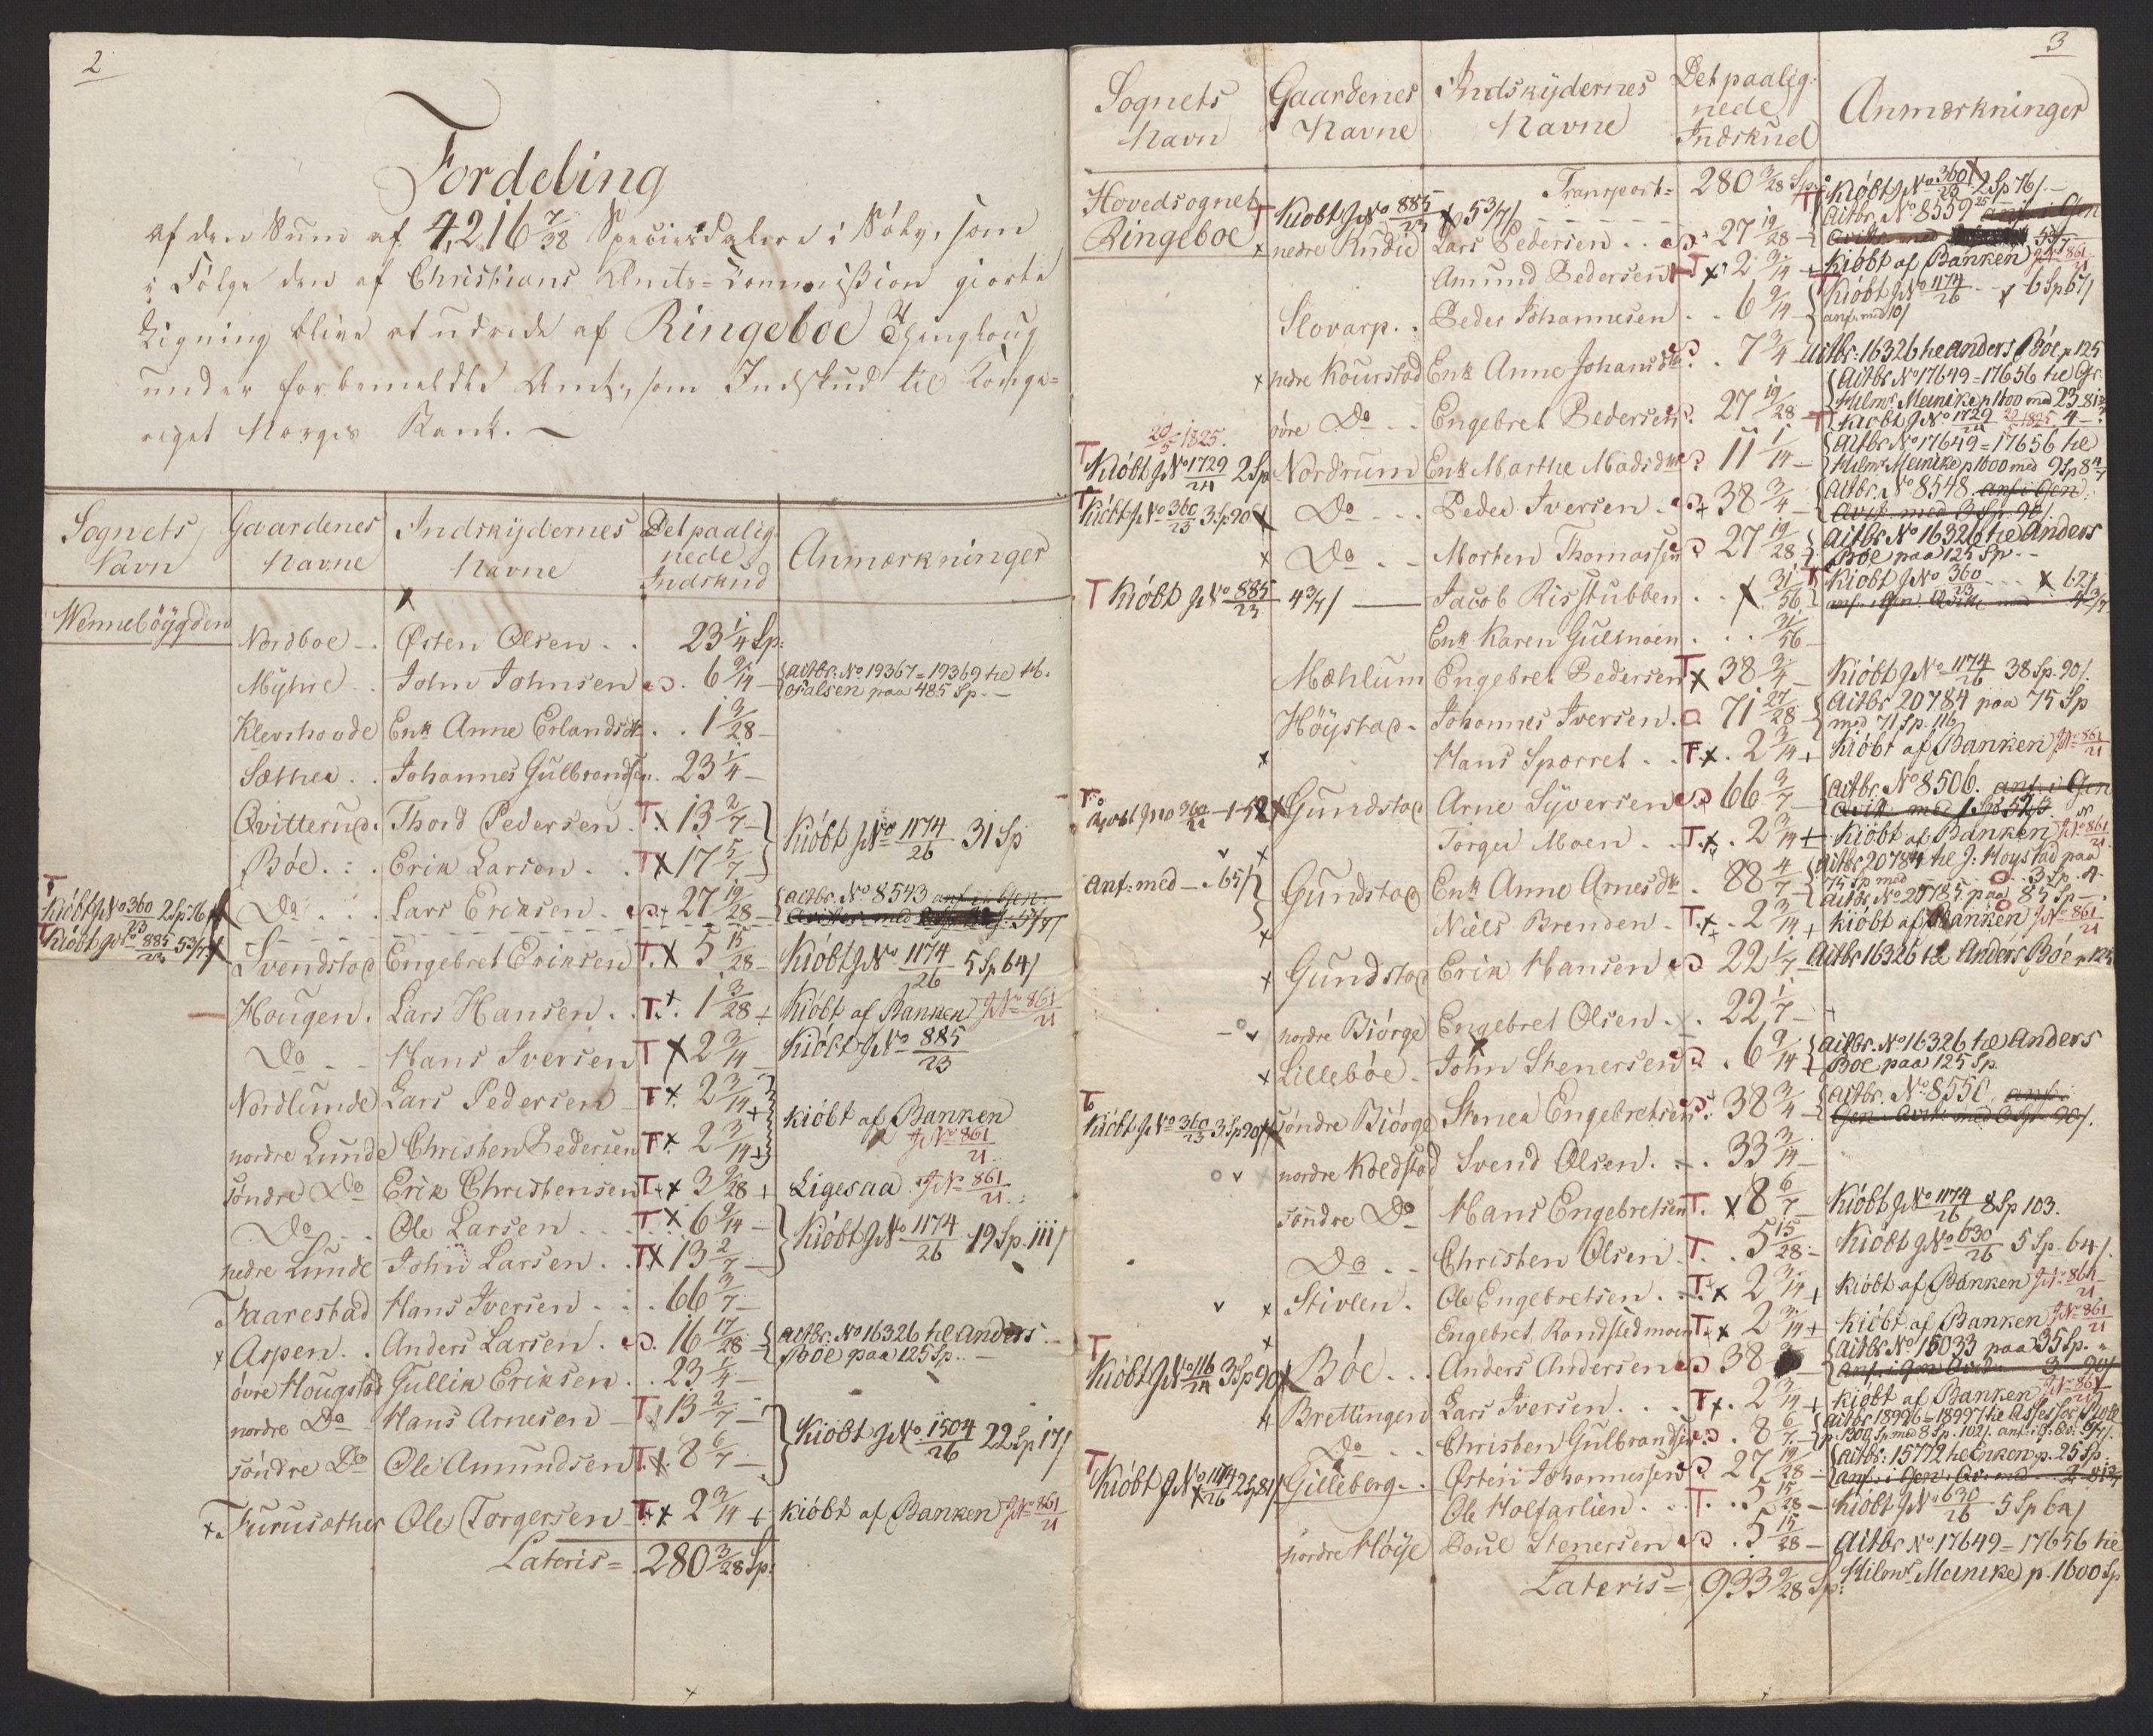 2
Fordeling
af den Sum af 4,216 7/38 Speciesdalere i Sølv, som
i Følge den af Christians Amts-Commission giorte
Ligning bliver at udrede af Ringeboe Thinglaug
under forbemeldte Amt, som Indskud til Konge-
riget Norges Bank. —
Sognets Navn | Gaardenes Navne | Indskydernes Navne | Det paalignede Indskud | Anmærkninger
Wennebøygden
Nordboe Østen Olsen 23 1/4 Sp:
Myhre John Johnsen 6 9/14 Actbr. No 19367=19369 til H. Falsen paa 485 Sp.
Klevshovde Enk Anne Erlandsdtr 1 3/28
Sæther Johannes Gulbrandsen 23 1/4
Qvitterud Thord Pedersen T. x 13 2/7
Bøe Erik Larsen T x 17 5/7 } Kiøbt J No 1174/26 31 Sp
T Kiøbt J No 360/23 2 Sp 76 Do Lars Eriksen 27 19/28 Actbr. No 8543 anf. i Gen:
T Kiøbt J No 885/23 5 3/7 Svendstad Engebret Eriksen T. x 5 15/28 Kiøbt J No 1174/26 5 Sp 64/
Hougen Lars Hansen T x 1 3/28 + Kiøbt af Banken J No 861/21
Do Hans Iversen T x 2 3/14 Kiøbt J No 885/23
Nordlunde Lars Pedersen T x 2 3/14 +
nordre Lunde Christen Pedersen T x 2 3/14 + } kiøbt af Banken J No 861/21
søndre Do Erik Christensen T x 3 9/28 + Ligesaa J No 861/21
Do Ole Larsen T x 6 9/14
nedre Lunde John Larsen T x 13 2/7 } Kiøbt J No 1174/26 19 Sp. 111/
Taarestad Hans Iversen 66 3/7
x Aspen Anders Larsen 16 17/28 Actbr. No 16326 til Anders Bøe paa 125 Sp.
øvre Hougstad Gullik Eriksen 23 1/4
nordre Do Hans Arnesen T 13 2/7
søndre Do Ole Amundsen T x 8 6/7 } Kiøbt J No 1504/26 22 Sp 17/
x Furusæther Ole Torgersen T x 2 3/14 + kiøbt af Banken J No 861/21
Lateris = 280 3/28 Sp:
3
Sognets Navn | Gaardenes Navne | Indskydernes Navne | Det paalignede Indskud | Anmærkninger
Hovedsognet Ringeboe
Transport = 280 3/28 Sp. T Kiøbt J No 360/23 2 Sp 76/
T Kiøbt J No 885/23 x 5 3/7/ Actbr. No 8559 anf. i Gen
x nedre Lars Pedersen 27 19/28
Amund Pedersen T x 2 3/14 + kiøbt af Banken J No 861/21
Slovarp Peder Johannesen 6 9/14 T Kiøbt J No 1174/26 6 Sp 67/ anf. med 10/
x nedre Kourstad Enk Anne Johansdtr 7 3/4 Actbr: 16326 til Anders Bøe p 125
øvre Do Engebret Pedersen 27 19/28 Actbr No 17649=17656 til Gr. Hilmr Meinike p 1600 med 23 81
T Kiøbt J No 1729/24 20/5 1825 4
20/5 1825.
T Kiøbt J No 1729/24 2 Sp Nordrum Enk Marthe Madsdtr 11 1/14 Actbr No 17649=17656 til Hilmr Meinike p 1600 med 9 Sp 8
T Kiøbt J No 360/23 3 Sp 90 Do Peder Iversen 38 3/4 Actbr. No 8548 anf i Gen. Qvit. med 3 Sp. 90/
x Do Morten Thomassen 27 19/28 Actbr. No 16326 til Anders Bøe paa 125 Sp.
T Kiøbt J No 885/23 4 3/7/ Jacob Risstubben x 31/56 T Kiøbt J No 360/23 x 62/
Enk Karen Gulmoen 31/56
Mæhlum Engebret Pedersen T x 38 3/4 Kiøbt J No 1174/26 38 Sp. 90/.
Høystad Johannes Iversen 71 27/28 Actbr 20784 paa 75 Sp med 71 Sp. 116
x Hans Sporret T x 2 3/14 + kiøbt af Banken J No 861/21
T Kiøbt J No 360/23 1-52 Gundstad Arne Syversen 66 3/7 Actbr. No 8506. anf. i Gen Qvit. med 1 Sp 52/3
x Torger Moen T x 2 3/14 + kiøbt af Banken J No 861/21
Anf: med 65/ Gundstad Enk Anne Arnesdtr 88 4/7 Actbr 20784 til J: Høystad paa 75 Sp med 3 Sp. 4 Actbr No 20785 paa 85 Sp
x Niels Brenden T x 2 3/14 + kiøbt af Banken J No 861/21
x Gundstad Erik Hansen 22 1/7 Actbr 16326 til Anders Bøe p 125
nordre Biørge Engebret Olsen 22 1/7
x Lillebøe John Stenersen 6 9/14 Actbr. No 16326 til Anders Bøe paa 125 Sp.
T Kiøbt J No 360/23 3 Sp 90/ søndre Biørge Stener Engebretsen 38 3/4 Actbr. No 8550. anf. i Gen. Qvit. med 3 Sp 90/.
nordre Koldstad Svend Olsen 33 3/14
søndre Do Hans Engebretsen T. x 8 6/7 Kiøbt J No 1174/26 8 Sp 103.
Do Christen Olsen T 5 15/28 Kiøbt J No 630/26 5 Sp. 64/.
x Stivlen Ole Engebretsen T x 2 3/14 + kiøbt af Banken J No 861/21
x Engebret Randstedmoen T x 2 3/14 + kiøbt af Banken J No 861/21
T Kiøbt J No 116/24 3 Sp 90 Bøe Anders Andersen 38 Actbr No 15033 paa 35 Sp.
Brettingen Lars Iversen T x 2 3/14 + kiøbt af Banken J No 861/21
Do Christen Gulbrandsen 8 6/7 Actbr 18996=18997 til Assessor p. 1300 Sp med 8 Sp. 102/.
T Kiøbt J No 1174/26 2 Sp 81/ Gilleberg Østen Johannessen 27 19/28 Actbr: 15772 til Enken p. 25 Sp
Ole Holfarlien T 5 15/28 Kiøbt J No 630/26 5 Sp 64/
nordre Høye Poul Stenersen 5 15/28 Actbr No 17649=17656 til Hilmr Meinike p. 1600 Sp
Lateris = 933 9/28 Sp: